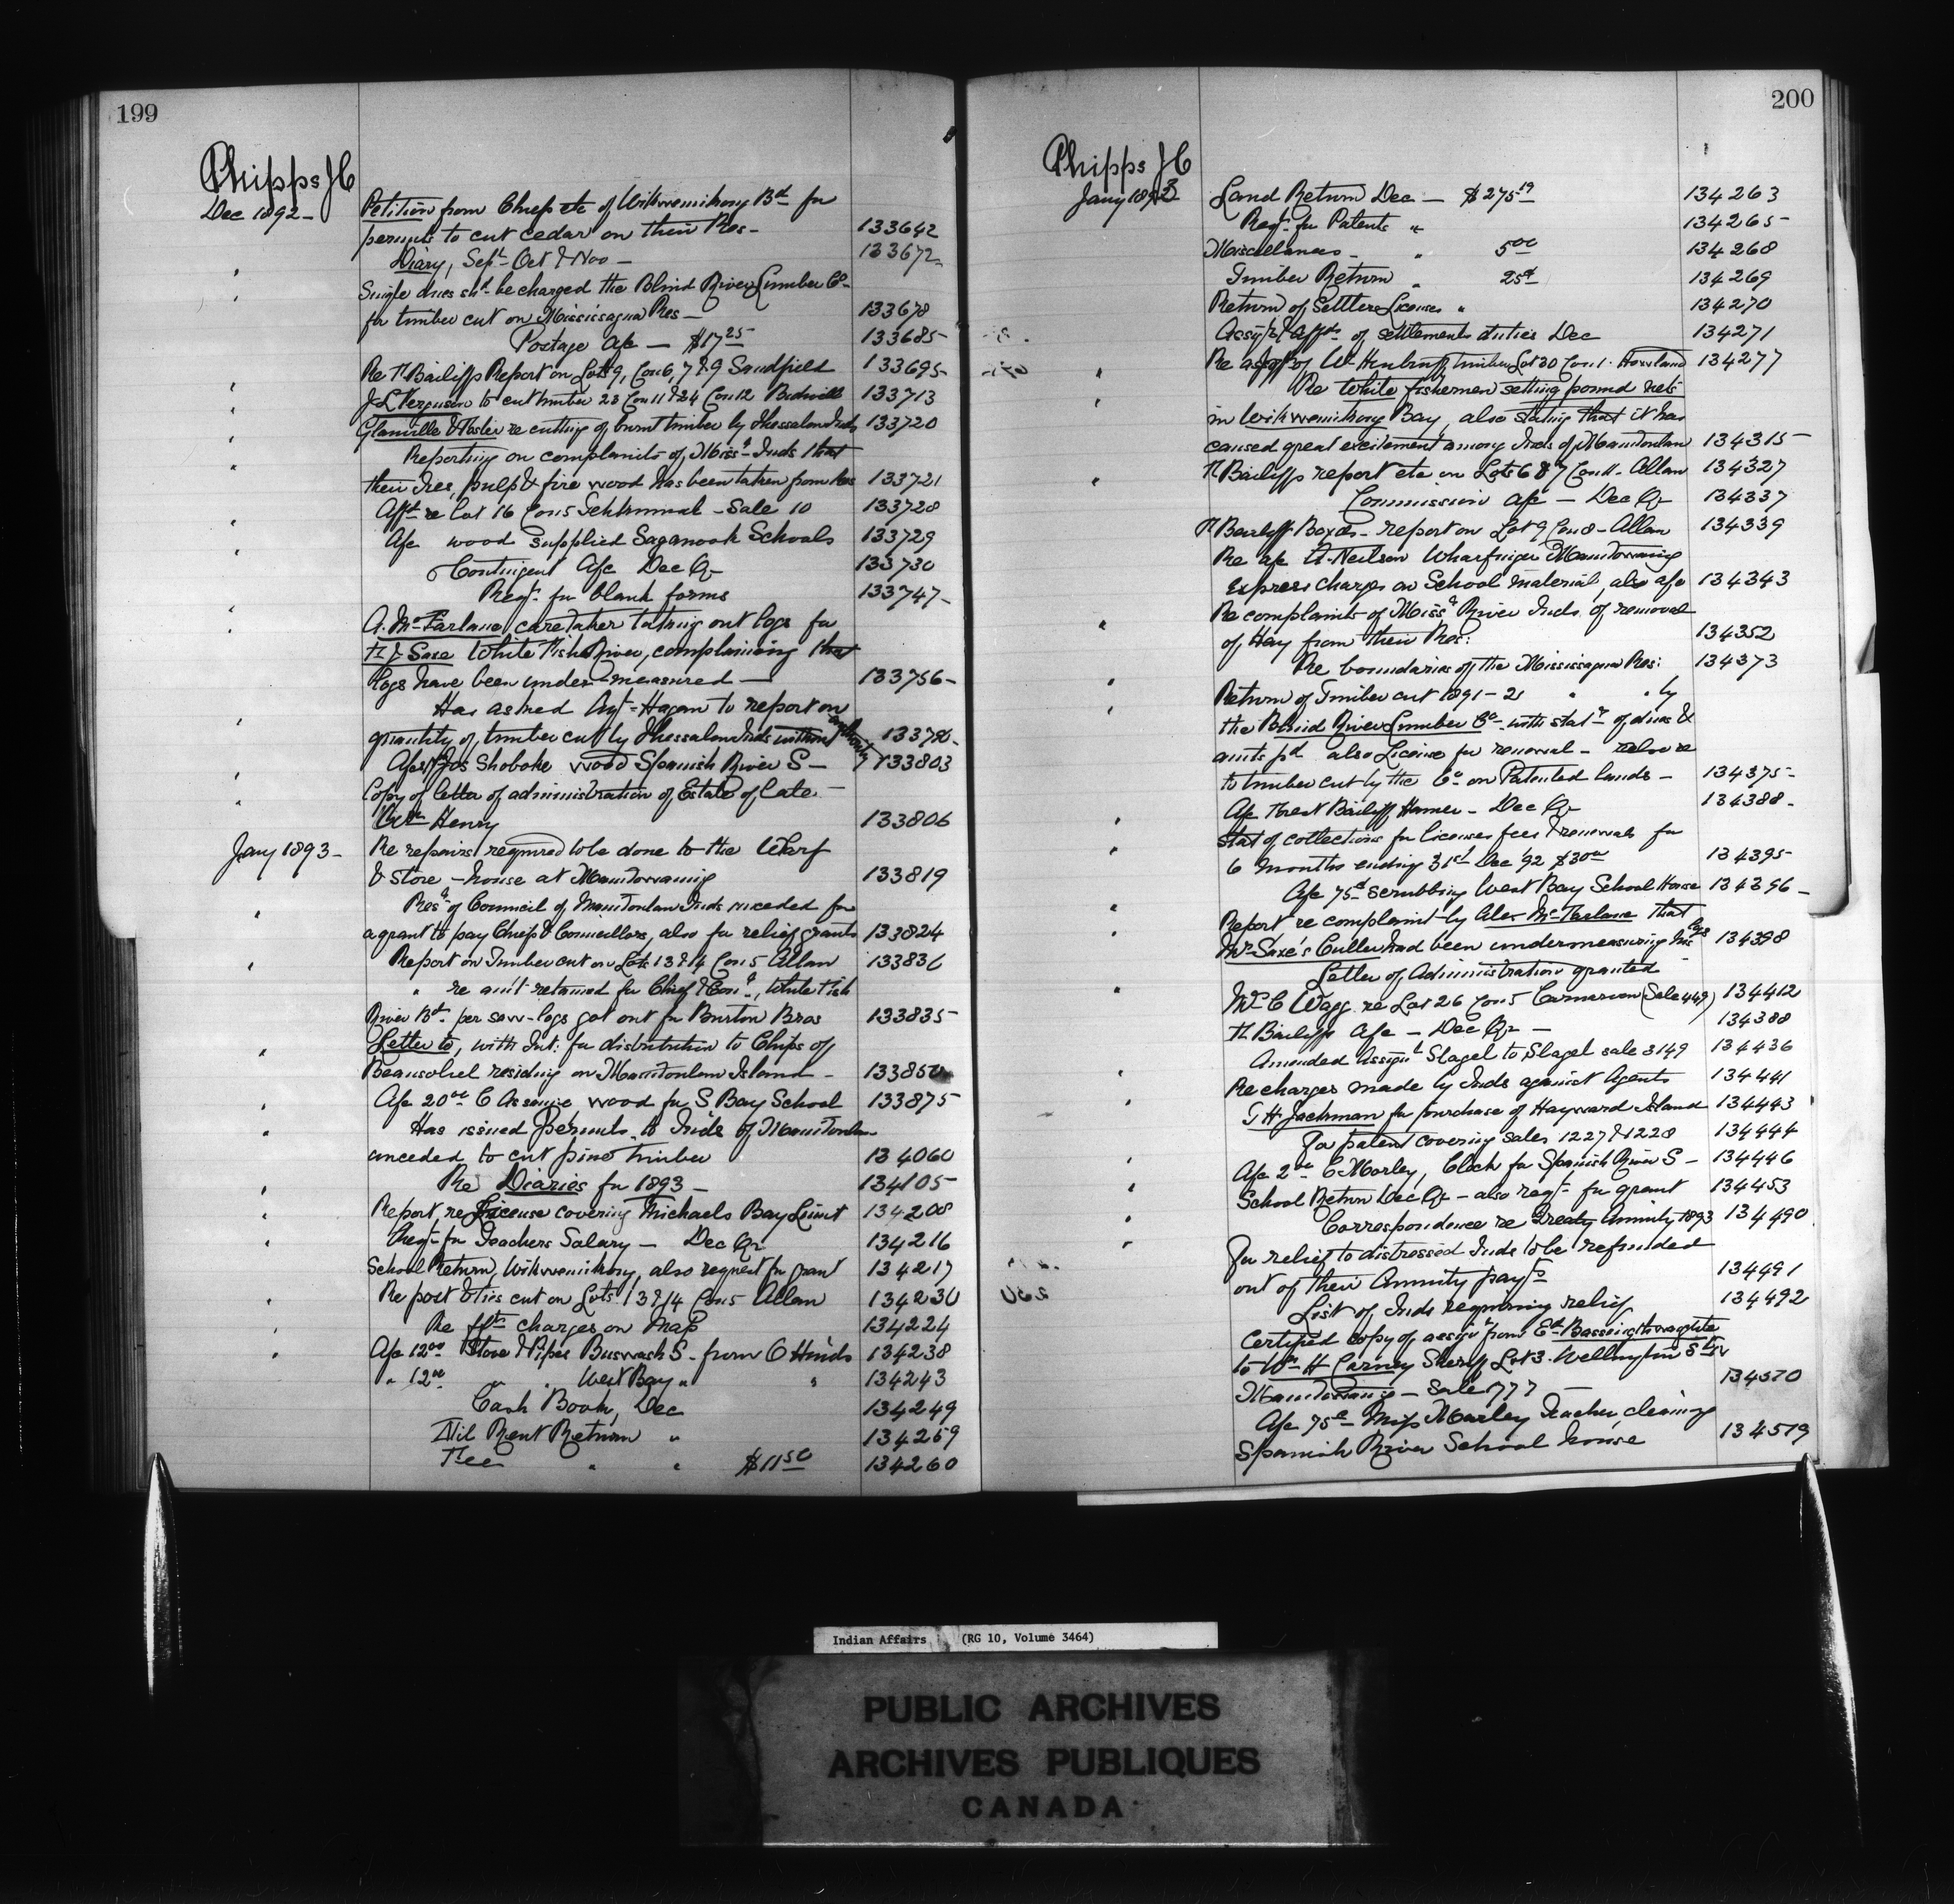 199
Phipps J C
Dec 1892 -
Petition from Chiefs etc of Wikwemikong Bd for
permits to cut cedar on their Res - 133642
" Diary, Sept Oct & Nov - 133672
" Single dues shd be charged the Blind River Lumber Co
for timber cut on Mississagua Res - 133678
Postage a/c - $17 25 133685
Re F. Bailiffs Report on Lots 9, Con 6, 7 & 9 Sandfield 133695
" J L Ferguson to cut timber 23 Con 11 & 24 Con 12 Bidwell 133713
" Glanville & re cutting of burnt timber by Thessalon Inds 133720
" Reporting on complaints of Miss a Inds that
" their ties, pulp & fire wood has been taken from Res 133721
Afft re Lot 16 Con 5 - Sale 10 133728
" A/c wood supplied Schools 133729
" Contingent A/c Dec Qr 133730
Reqn for blank forms 133747
" A. McFarlane, caretaker taking out logs for
" Saxe White Fish River, complaining that
logs have been under-measured - 133756
Has asked Agt Hagan to report on
" quantity of timber cut by Thessalon Inds without authority
A/c Jos Shoboke wood Spanish River S - 133803
" Copy of letter of administration of Estate of late
" Wm Henry 133806
Jany 1893 -
Re repairs required to be done to the Wharf
& Store-house at Manitowaning 133819
" Resn of Council of Manitoulin Inds unceded for
a grant to pay Chiefs & Councillors, also for relief grants 133824
" Report on Timber cut on Lots 13 & 14 Con 5 Allan
" re amt retained for Chief & Conrs, White Fish
River Bd per saw-logs got out for Burton Bros 133835
" Letter to, with Int: for distribution to Chips of
Beausoliel residing on Manitoulin Island -
" A/c 20 00 C wood for S Bay School 133875
" Has issued permits to Inds of Manitoulin
unceded to cut pine timber 134060
" Re Diaries for 1893 - 134105
" Report re License covering Michaels Bay Limit 134208
" Reqn for Teachers Salary - Dec Qr 134216
School Return, Wikwemikong, also request for grant 134217
" Report & ties cut on Lots 13 & 14 Con 5 Allan 134230
" Re frt charges on Map 134224
" A/c 12 00 Stove & Pipes Buswash S. from C Hinds 134238
" 12 00 " " West Bay " " 134243
Cash Book, Dec 134249
Nil Rent Return " 134259
Fee " " $11 50 134260
200
Phipps J C
Jany 1893
Land Return Dec - $275 19 134263
Reqn for Patents " 134265
Miscellaneous " 5 00 134268
Timber Return " 134269
Return of Settlers Licenses " 134270
Assigt & Affts of settlement duties Dec 134271
" Re timber Lot 30 Con 1. Howland 134277
" Re white fishermen setting pound nets
in Wikwemikong Bay, also stating that it has
caused great excitement among Inds of Manitoulin 134315
" F Bailiffs report etc on Lots 6 & 7 Con 11. Allan 134327
Commission a/c - Dec Qr 134337
F Bailiff Boyds - report on Lot 9 Con 8 - Allan 134339
Re a/c A. Neilson Wharfinger Manitowaning
express charges on School material, also a/c 134343
" Re complaints of Missa River Inds of removal
of Hay from their Res: 134352
" Re boundaries of the Mississagua Res: 134373
" Return of Timber cut 1891-2 " " by
the Blind River Lumber Co with statt of dues &
amts pd also License for renewal - also re
to timber cut by the Co on Patented lands - 134375
" A/c Forest Bailiff Hamer - Dec Qr 134388
" Stat of collections for licenses fees & renewals for
6 months ending 31st Dec '92 $30 00 134395
" A/c 75c scrubbing West Bay School House 134396
" Report re complaint by Alex McFarlane that
Mr Saxe's Culler had been undermeasuring his logs 134398
" Letter of Administration granted
Mrs C Wagg re Lot 26 Con 5 Carnarvon (Sale 449) 134412
F Bailiffs A/c - Dec Qr - 134388
" Amended Assignt Slagel to Slagel sale 3149 134436
" Re charges made by Inds against Agents 134441
T H Jackman for purchase of Hayward Island 134443
For patent covering sales 1227 & 1228 134444
" A/c 2 00 C Morley, Clock for Spanish River S - 134446
" School Return Dec Qr - also reqn for grant 134453
" Correspondence re Treaty Annuity 1893 134490
" For relief to distressed Inds to be refunded
out of their Annuity payts 134491
List of Inds requiring relief 134492
Certified copy of assignt from Ed Bassingthwaighte
to Wm H Carney Sheriff Lot 3. Wellington St
Manitowaning - Sale 1777 -
A/c 75c Miss Morley Teacher, cleaning
Spanish River School house 134519
Indian Affairs (RG 10, Volume 3464)
PUBLIC ARCHIVES
ARCHIVES PUBLIQUES
CANADA